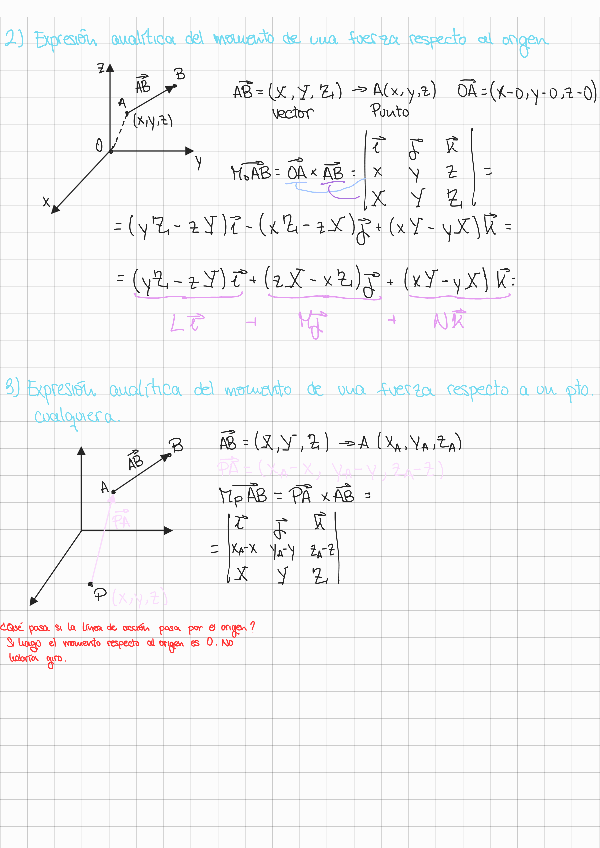 2) Expresión analítica del momento de una fuerza respecto al origen.
z
AB⃗ B
A
(x,y,z)
O
y
x
AB⃗ = (X, Y, Z) → A(x,y,z) OA⃗ = (x-0, y-0, z-0)
vector Punto
M₀AB⃗ = OA⃗ × AB⃗ = | i⃗ j⃗ k⃗ | =
| x y z |
| X Y Z |
= (yZ - zY) i⃗ - (xZ - zX) j⃗ + (xY - yX) k⃗ =
= (yZ - zY) i⃗ + (zX - xZ) j⃗ + (xY - yX) k⃗ =
L i⃗ + M j⃗ + N k⃗
3) Expresión analítica del momento de una fuerza respecto a un pto.
cualquiera.
AB⃗ B
A
PA⃗
P (x,y,z)
AB⃗ = (X, Y, Z) → A (xA, yA, zA)
PA⃗ = (xA-x, yA-y, zA-z)
MpAB⃗ = PA⃗ × AB⃗ =
= | i⃗ j⃗ k⃗ |
| xA-x yA-y zA-z |
| X Y Z |
¿Qué pasa si la línea de acción pasa por el origen?
Si hago el momento respecto al origen es 0. No
habría giro.